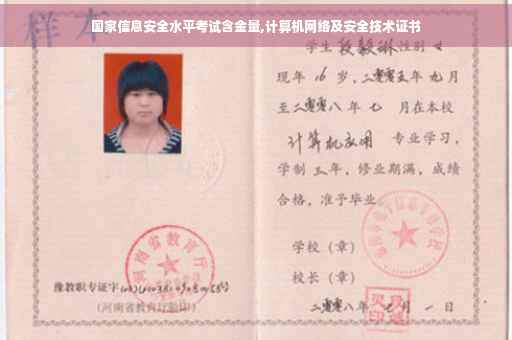 国家信息安全水平考试含金量,计算机网络及安全技术证书
样本
学生段毅琳性别女
现年16岁,二零零五年九月
至二零零八年七月在本校
计算机应用 专业学习,
学制三年,修业期满,成绩
合格,准予毕业
学校(章)
校长(章)
二零零八年七月一日
河南省教育厅
豫教职专证字
(河南省教育厅验印)